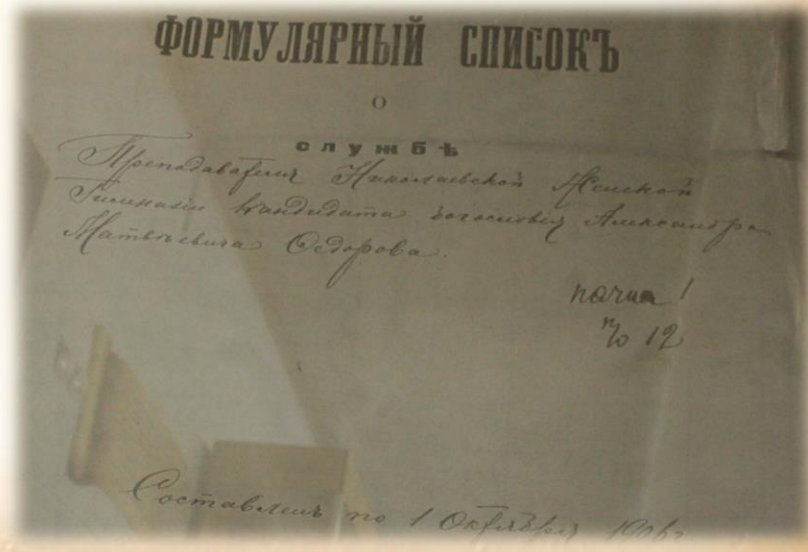 ФОРМУЛЯРНЫЙ СПИСОКЪ
О
СЛУЖБѢ
Преподавателя Николаевской Женской
Гимназіи Кандидата Богословія Александра
Матвѣевича Ѳедорова.
№ 12
Составленъ по 1 Октября